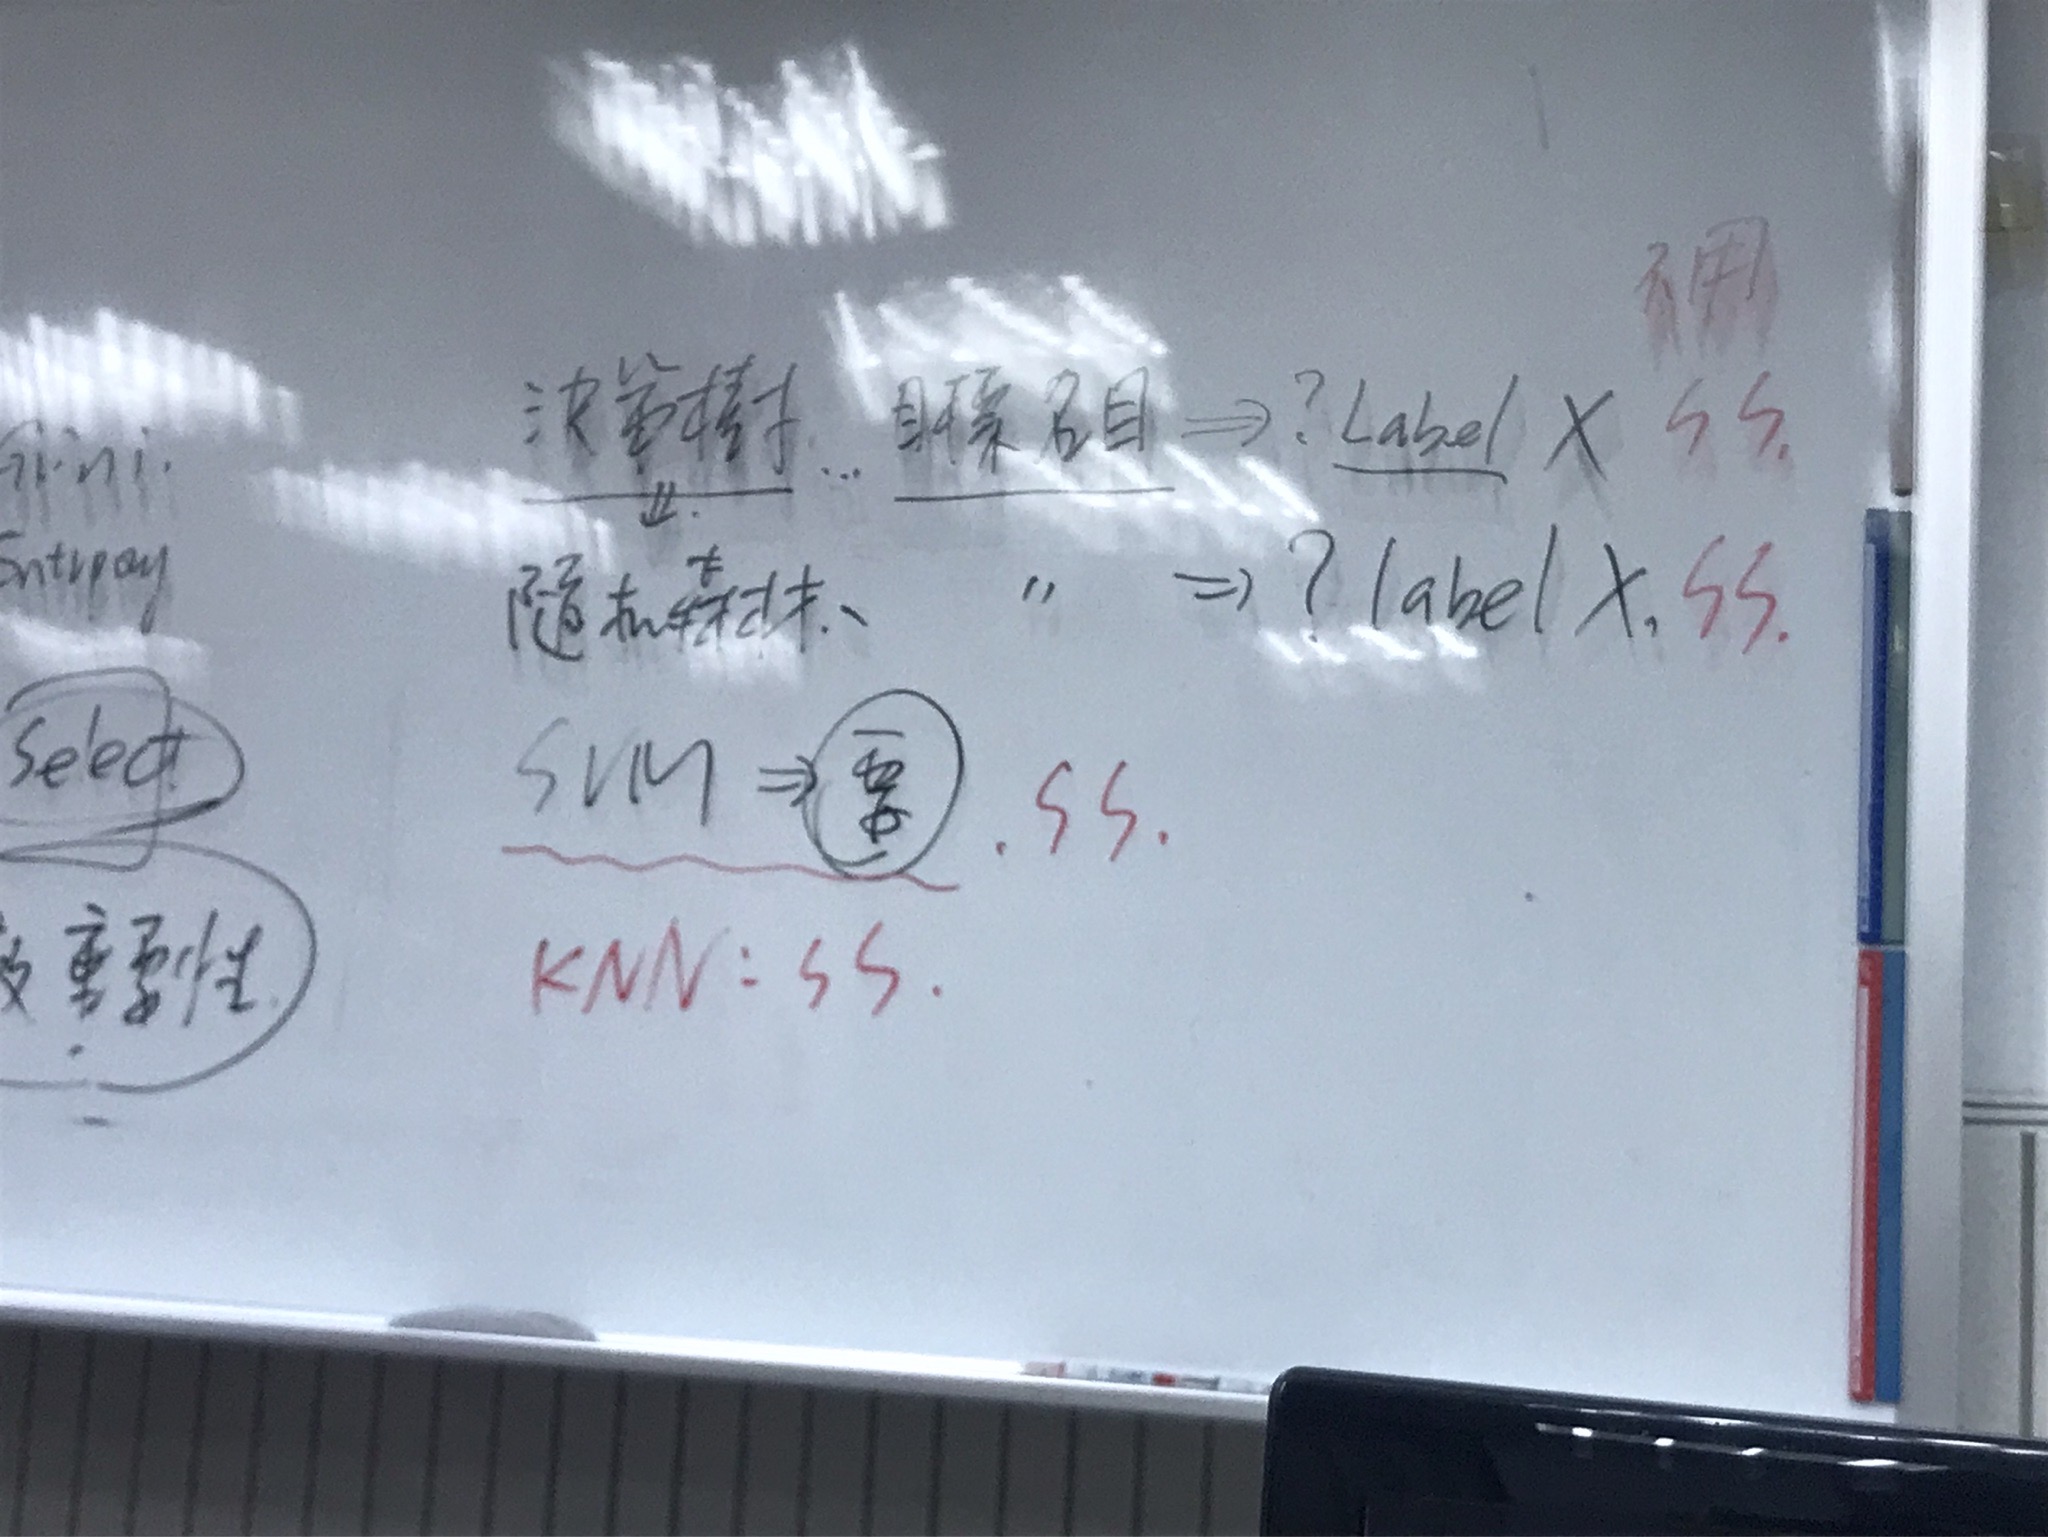 不用
Gini.
Entrpoy
Select
重要性.
決策樹... 目標名目 ⇒ ? Label X SS.
隨机森林、 〃 ⇒ ? label X. SS.
SVM ⇒ 要 . SS.
KNN: SS.